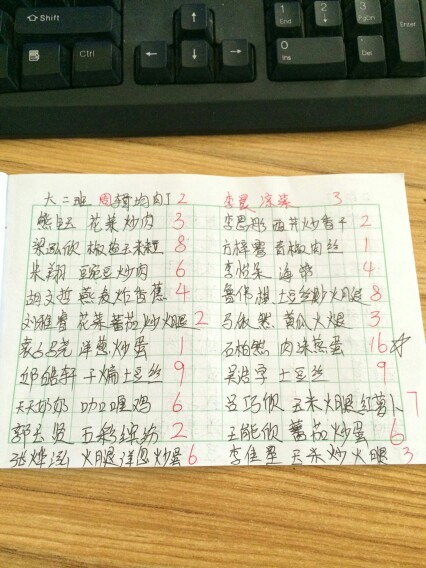 Shift
Ctrl
1
End
2
3
PgDn
Enter
0
Ins
Del
大二班 周 肉丁 2
李昱 凉菜 3
熊玉 花菜炒肉 3
西芹炒香干 2
梁泓欣 椒盐玉米粒 8
青椒肉丝 1
朱翔 豌豆炒肉 6
李怡朵 海带 4
胡文哲 燕麦炸香蕉 4
鲁伟棋 土豆丝炒火腿 8
刘雅睿 花菜蕃茄炒火腿 2
马依然 黄瓜火腿 3
洋葱炒蛋 1
石柏然 肉沫蒸蛋 16
邓皓轩 干煸土豆丝 9
吴浩宇 土豆丝 9
天天奶奶 咖喱鸡 6
吕巧欣 玉米火腿红萝卜 7
郭天贤 五彩缤纷 2
王能欣 蕃茄炒蛋 6
张烨泓 火腿洋葱炒蛋 6
李佳星 炒火腿 3